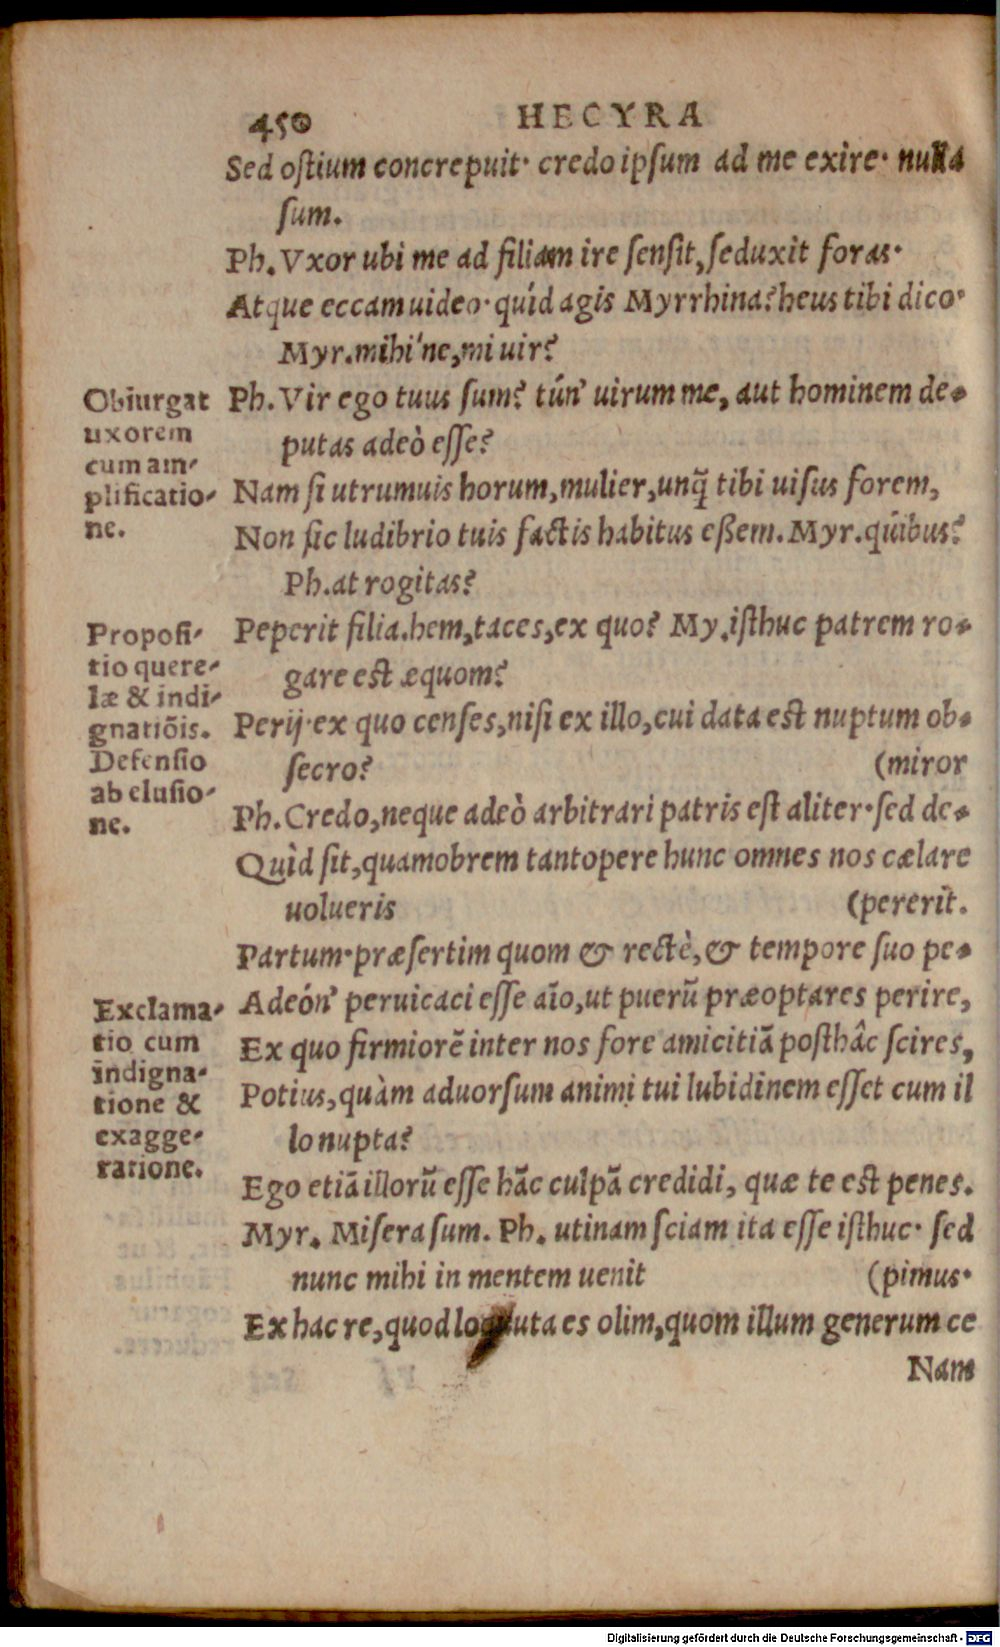 450 HECYRA
Sed oſtium concrepuit· credo ipſum ad me exire· nulla
ſum.
Ph. Vxor ubi me ad filiam ire ſenſit, ſe duxit foras·
Atque eccam uideo· quíd agis Myrrhina? heus tibi dico·
Myr. mihi'ne, mi uir?
Obiurgat
uxorem
cum am-
plificatio-
ne.
Ph. Vir ego tuus ſum? tún' uirum me, aut hominem de-
putas adeò eſſe?
Nam ſi utrumuis horum, mulier, unq̃ tibi uiſus forem,
Non ſic ludibrio tuis factis habitus eßem. Myr. quíbus?
Ph. at rogitas?
Propoſi-
tio quere-
læ & indi-
gnatiõis.
Defenſio
ab eluſio-
ne.
Peperit filia. hem, taces, ex quo? My. iſthuc patrem ro-
gare eſt æquom?
Perij· ex quo cenſes, niſi ex illo, cui data eſt nuptum ob-
ſecro? (miror
Ph. Credo, neque adeò arbitrari patris eſt aliter· ſed de-
Quìd ſit, quamobrem tantopere hunc omnes nos cælare
uolueris (pererit.
Partum· præſertim quom & rectè, & tempore ſuo pe-
Exclama-
tio cum
indigna-
tione &
exagge-
ratione.
Adeón' peruicaci eſſe aĩo, ut puerũ præoptares perire,
Ex quo firmiorẽ inter nos fore amicitiã poſthâc ſcires,
Potius, quàm aduorſum animi tui lubidinem eſſet cum il
lo nupta?
Ego etiã illorũ eſſe hãc culpã credidi, quæ te eſt penes.
Myr. Miſera ſum. Ph. utinam ſciam ita eſſe iſthuc· ſed
nunc mihi in mentem uenit (pimus·
Ex hac re, quod locuta es olim, quom illum generum ce
Nam
Digitalisierung gefördert durch die Deutsche Forschungsgemeinschaft - DFG